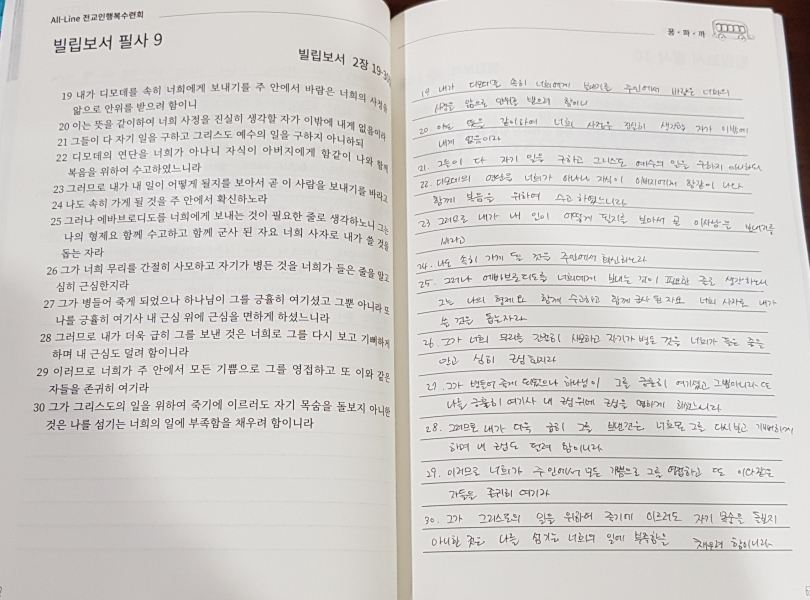 All-Line 전교인행복수련회
빌립보서 필사 9
빌립보서 2장 19-30
19 내가 디모데를 속히 너희에게 보내기를 주 안에서 바람은 너희의 사정을
앎으로 안위를 받으려 함이니
20 이는 뜻을 같이하여 너희 사정을 진실히 생각할 자가 이밖에 내게 없음이라
21 그들이 다 자기 일을 구하고 그리스도 예수의 일을 구하지 아니하되
22 디모데의 연단을 너희가 아나니 자식이 아버지에게 함같이 나와 함께
복음을 위하여 수고하였느니라
23 그러므로 내가 내 일이 어떻게 될지를 보아서 곧 이 사람을 보내기를 바라고
24 나도 속히 가게 될 것을 주 안에서 확신하노라
25 그러나 에바브로디도를 너희에게 보내는 것이 필요한 줄로 생각하노니 그는
나의 형제요 함께 수고하고 함께 군사 된 자요 너희 사자로 내가 쓸 것을
돕는 자라
26 그가 너희 무리를 간절히 사모하고 자기가 병든 것을 너희가 들은 줄을 알고
심히 근심한지라
27 그가 병들어 죽게 되었으나 하나님이 그를 긍휼히 여기셨고 그뿐 아니라 또
나를 긍휼히 여기사 내 근심 위에 근심을 면하게 하셨느니라
28 그러므로 내가 더욱 급히 그를 보낸 것은 너희로 그를 다시 보고 기뻐하게
하며 내 근심도 덜려 함이니라
29 이러므로 너희가 주 안에서 모든 기쁨으로 그를 영접하고 또 이와 같은
자들을 존귀히 여기라
30 그가 그리스도의 일을 위하여 죽기에 이르러도 자기 목숨을 돌보지 아니한
것은 나를 섬기는 너희의 일에 부족함을 채우려 함이니라
꿈·파·까
19 내가 디모데를 속히 너희에게 보내기를 주안에서 바람은 너희의
사정을 앎으로 안위를 받으려 함이니
20 이는 뜻을 같이하여 너희 사정을 진실히 생각할 자가 이밖에
내게 없음이라
21. 그들이 다 자기 일을 구하고 그리스도 예수의 일을 구하지 아니하되
22. 디모데의 연단을 너희가 아나니 자식이 아버지에게 함같이 나와
함께 복음을 위하여 수고하였느니라
23 그러므로 내가 내 일이 어떻게 될지를 보아서 곧 이사람을 보내기를
바라고
24. 나도 속히 가게 될 것을 주안에서 확신하노라
25. 그러나 에바브로디도를 너희에게 보내는 것이 필요한 줄로 생각하노니
그는 나의 형제요 함께 수고하고 함께 군사 된 자요 너희 사자로 내가
쓸 것을 돕는자라
26. 그가 너희 무리를 간절히 사모하고 자기가 병든 것을 너희가 들은 줄을
알고 심히 근심한지라
27. 그가 병들어 죽게 되었으나 하나님이 그를 긍휼히 여기셨고 그뿐아니라 또
나를 긍휼히 여기사 내 근심위에 근심을 면하게 하셨느니라
28. 그러므로 내가 더욱 급히 그를 보낸것은 너희로 그를 다시보고 기뻐하게
하며 내 근심도 덜려 함이니라
29. 이러므로 너희가 주안에서 모든 기쁨으로 그를 영접하고 또 이와같은
자들을 존귀히 여기라
30. 그가 그리스도의 일을 위하여 죽기에 이르러도 자기 목숨을 돌보지
아니한 것은 나를 섬기는 너희의 일에 부족함을 채우려 함이니라